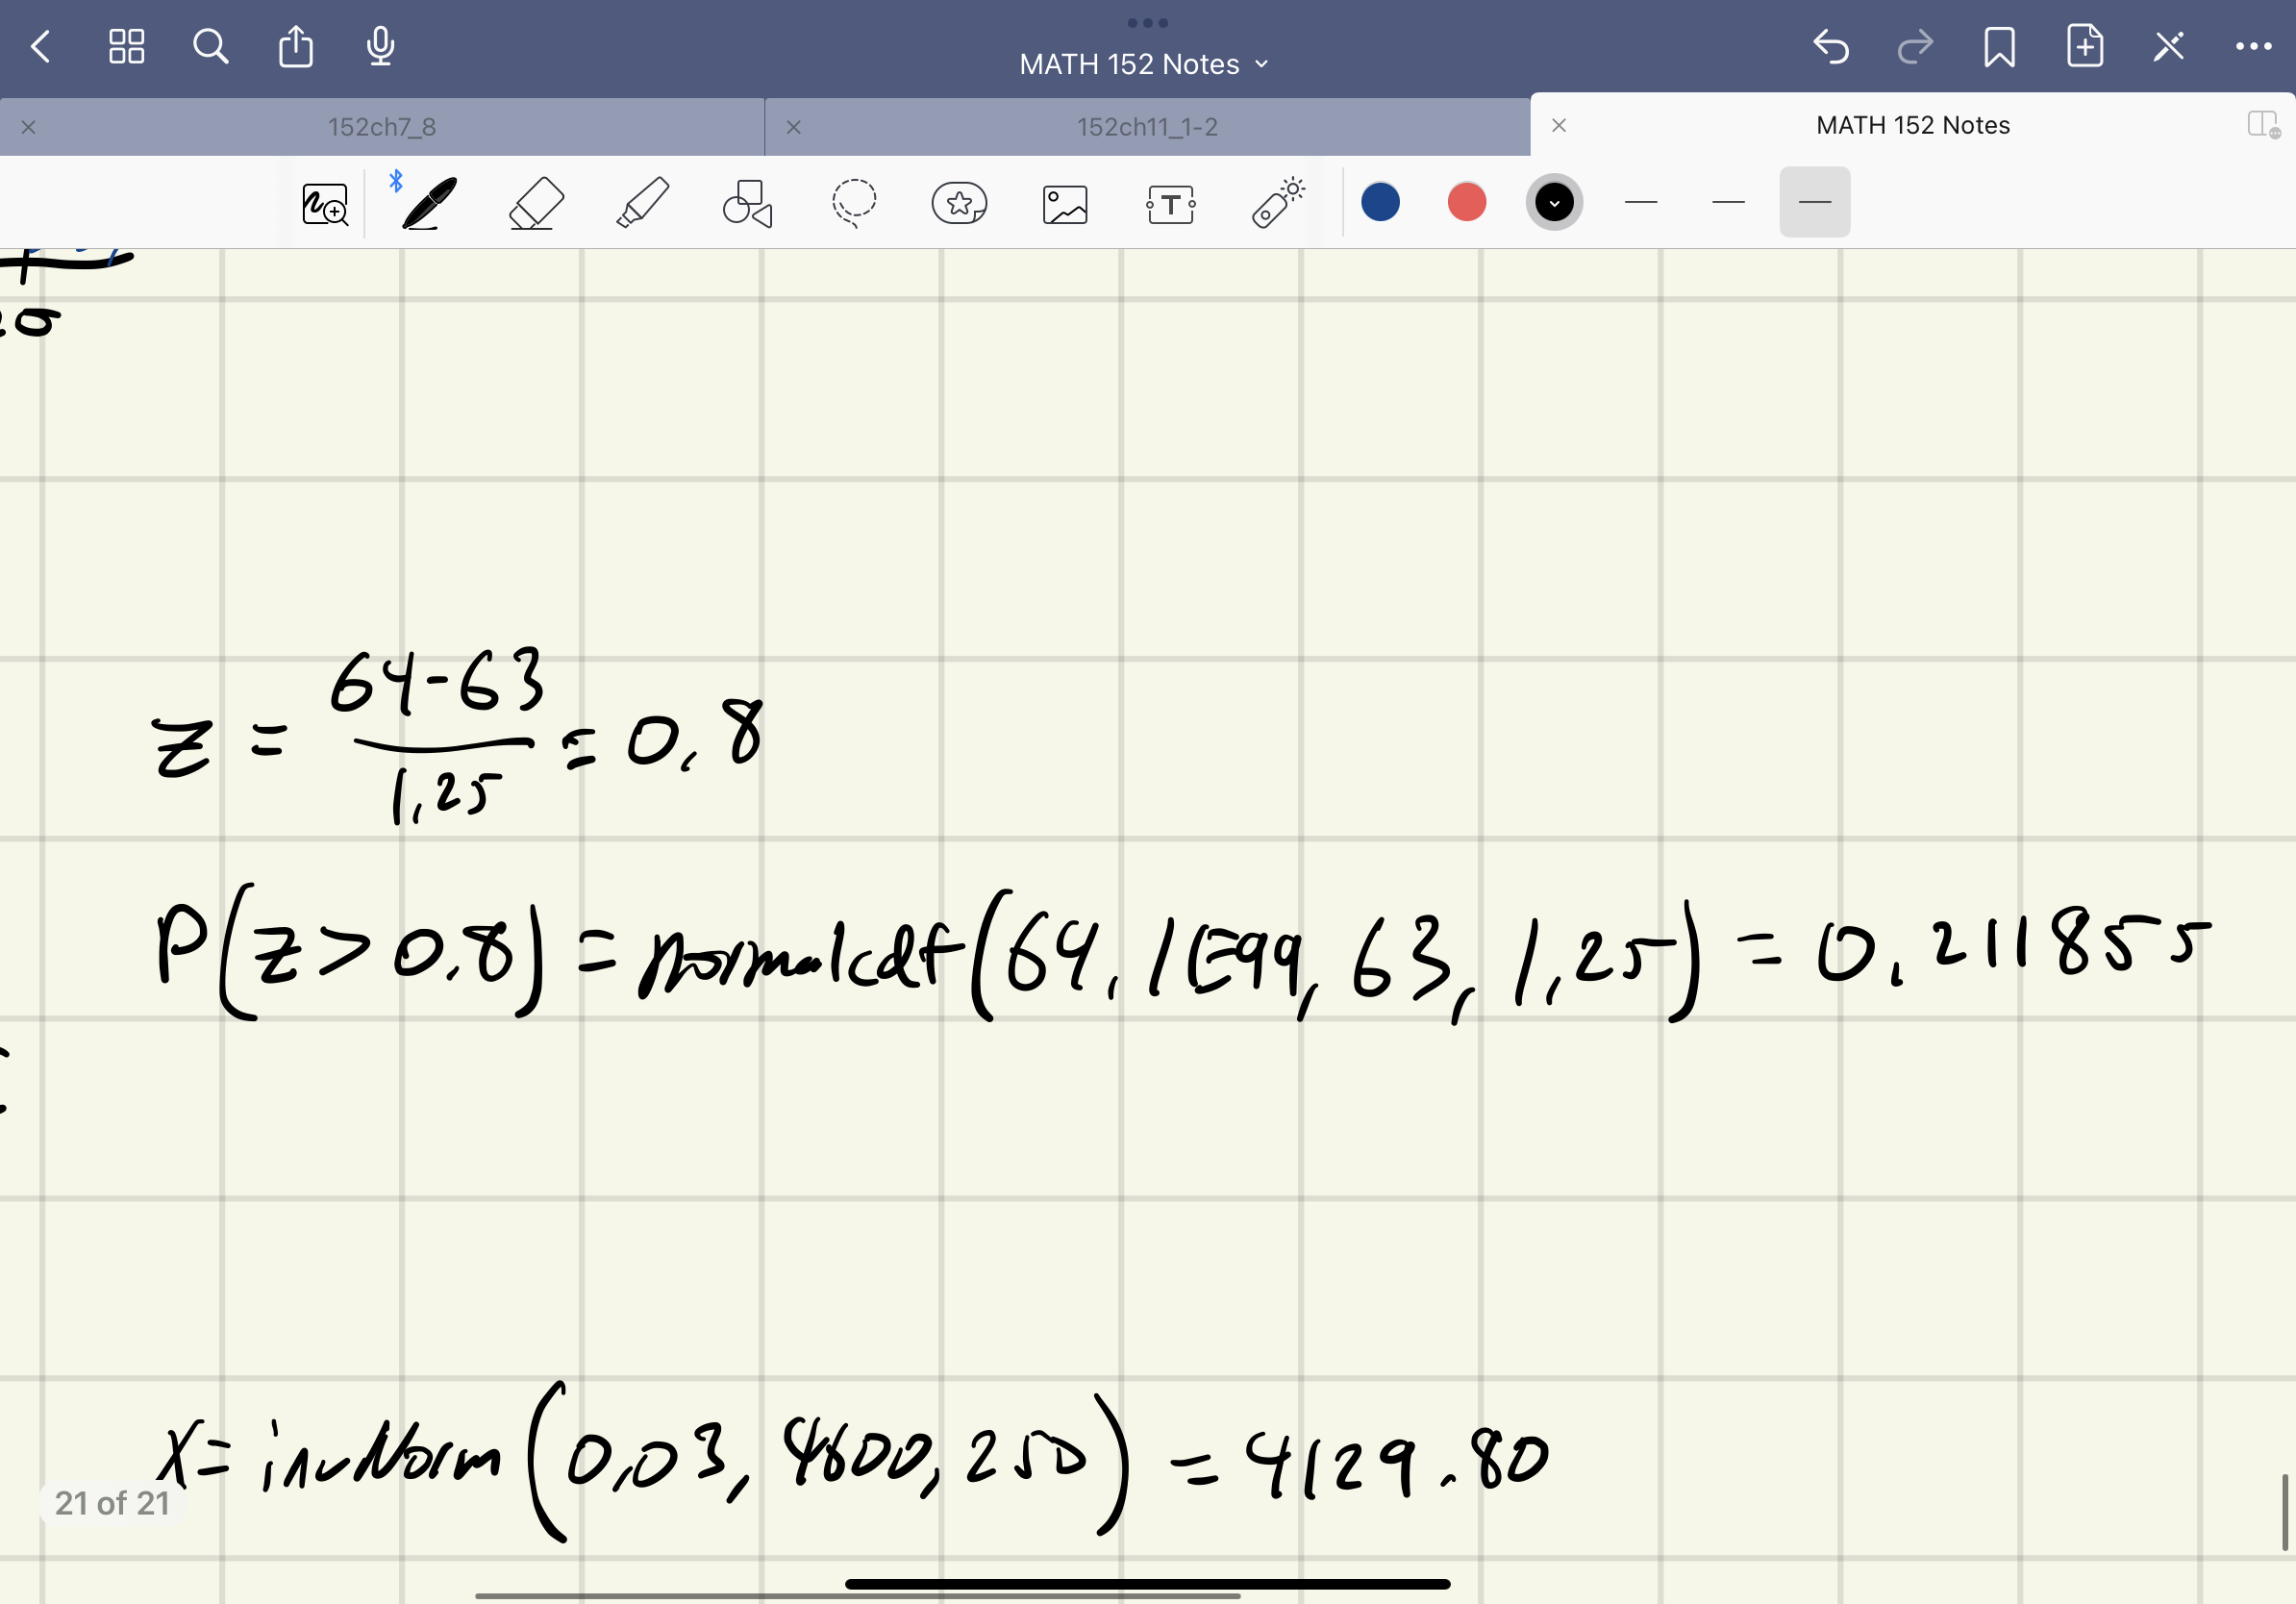 MATH 152 Notes
152ch7_8
152ch11_1-2
MATH 152 Notes
T
2a
64-63
z = = 0.8
1.25
P(z > 0.8) = normalcdf(64, 1E99, 63, 1.25) = 0.211855
X = invNorm(0.03, 4600, 250) = 4129.80
21 of 21